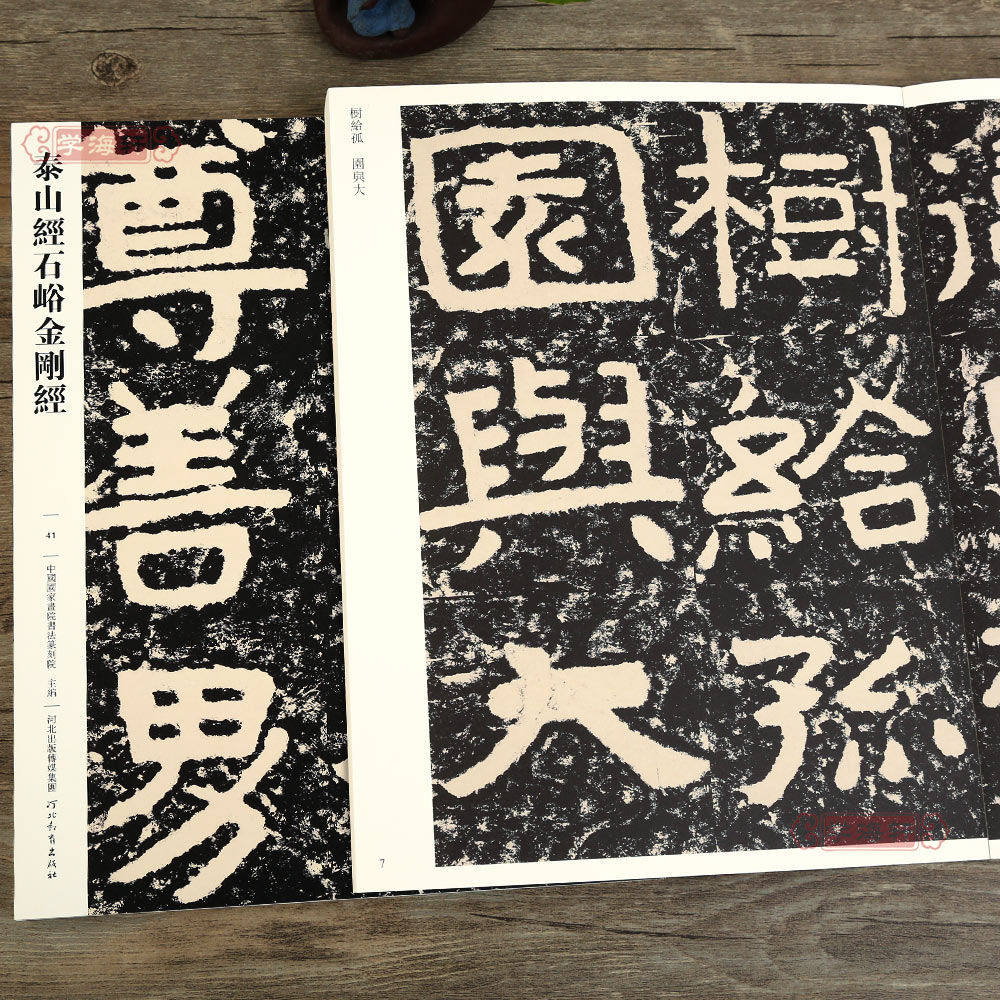 学海轩
泰山經石峪金剛經
41
中國國家畫院書法篆刻院 主編
河北出版傳媒集團
河北教育出版社
尊善男
樹給孤 園與大
樹給孤
園與大
7